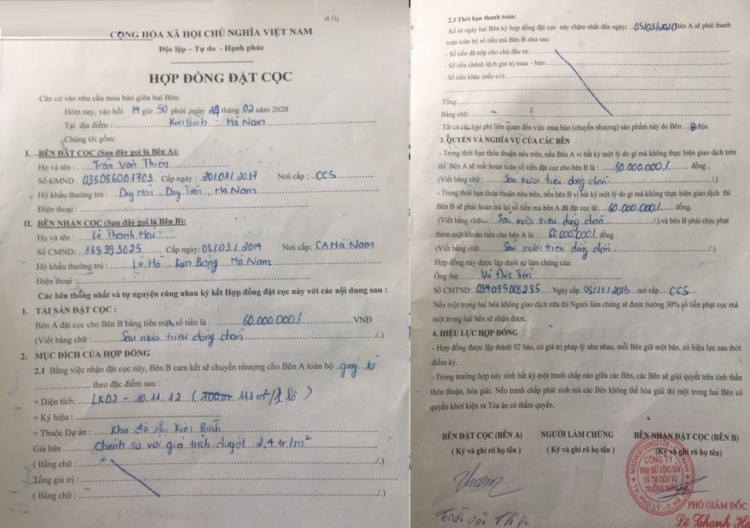 CỘNG HÒA XÃ HỘI CHỦ NGHĨA VIỆT NAM
Độc lập – Tự do – Hạnh phúc
HỢP ĐỒNG ĐẶT CỌC
Căn cứ vào nhu cầu mua bán giữa hai Bên:
Hôm nay, vào hồi 14 giờ 50 phút, ngày 29 tháng 02 năm 2020
Tại địa điểm : Kim Bình - Hà Nam
Chúng tôi gồm:
I. BÊN ĐẶT CỌC (Sau đây gọi là Bên A):
Họ và tên : Trần Văn
Số CMND: 035086001703 Cấp ngày: 2017 Nơi cấp: CCS
Hộ khẩu thường trú : Duy Hải, Duy Tiên, Hà Nam
Điện thoại :
II. BÊN NHẬN CỌC (Sau đây gọi là Bên B) :
Họ và tên : Lê Thanh Hải
Số CMND: 168393025 Cấp ngày: 05/03/2014 Nơi cấp: CA Hà Nam
Hộ khẩu thường trú : Lê Hồ, Kim Bảng, Hà Nam
Điện thoại
Các bên thống nhất và tự nguyện cùng nhau ký kết Hợp đồng đặt cọc này với các nội dung sau :
1. TÀI SẢN ĐẶT CỌC :
Bên A đặt cọc cho Bên B bằng tiền mặt, số tiền là : 60.000.000/. VNĐ
(Viết bằng chữ : Sáu mươi triệu đồng chẵn ./.)
2. MỤC ĐÍCH CỦA HỢP ĐỒNG
2.1 Bằng việc nhận đặt cọc này, Bên B cam kết sẽ chuyển nhượng cho Bên A toàn bộ
theo đặc điểm sau :
+ Diện tích: LK02 - 10.11.12 ( 111 m²/1 lô )
+ Ký hiệu :
+ Thuộc Dự án : Khu đô thị Kim Bình
Giá bán Chênh so với giá trình duyệt 2,4 tr/m²
( Bằng chữ : ./.)
Tổng giá trị :
( Bằng chữ : ./.)
2.3 Thời hạn thanh toán:
Kể từ ngày hai Bên ký hợp đồng đặt cọc này chậm nhất đến ngày: 05/03/2020 Bên A sẽ phải thanh
toán toàn bộ số tiền mà Bên B như sau:
- Số tiền đã nộp cho chủ đầu tư:
- Số tiền chênh lệch giá trị mua – bán:
- Số tiền khác (nếu có):
Tổng:
Bằng chữ:
Tất cả các loại phí liên quan đến việc mua bán (chuyển nhượng) sản phẩm này do Bên B chịu.
3. QUYỀN VÀ NGHĨA VỤ CỦA CÁC BÊN
- Trong thời hạn thỏa thuận nêu trên, nếu Bên A vì bất kỳ một lý do gì mà không thực hiện giao dịch trên
thì Bên A sẽ mất hoàn toàn số tiền đặt cọc cho bên B là : 60.000.000/. đồng.
(Viết bằng chữ: Sáu mươi triệu đồng chẵn ./.)
- Trong thời hạn thỏa thuận nêu trên, nếu Bên B vì bất kỳ một lý do gì mà không thực hiện giao dịch thì
Bên B sẽ phải hoàn trả lại số tiền mà bên A đã đặt cọc là: 60.000.000/. đồng
(Viết bằng chữ: Sáu mươi triệu đồng chẵn ./.) và bên B phải chịu phạt
thêm một khoản tiền cho bên A là : 60.000.000/. đồng.
(Viết bằng chữ: Sáu mươi triệu đồng chẵn ./.)
Hợp đồng này được lập dưới sự làm chứng của:
Ông /bà: Vũ Đức
Số CMTND: 034095005285 Ngày cấp 08/11/2016 nơi cấp CCS
Nếu một trong hai bên không giao dịch nữa thì Người làm chứng sẽ được hưởng 30% số tiền phạt cọc mà
một trong hai bên sẽ nhận được.
4. HIỆU LỰC HỢP ĐỒNG
- Hợp đồng được lập thành 02 bản, có giá trị pháp lý như nhau, mỗi Bên giữ một bản, có hiệu lực sau thời
điểm ký.
- Trong trường hợp này sinh bất kỳ một tranh chấp nào giữa các Bên, các Bên sẽ giải quyết trên tinh thần
thỏa thuận, hòa giải. Nếu tranh chấp phát sinh mà các Bên không thể hòa giải thì một trong hai Bên có
quyền khởi kiện ra Tòa án có thẩm quyền.
BÊN ĐẶT CỌC (BÊN A) NGƯỜI LÀM CHỨNG BÊN NHẬN ĐẶT CỌC (BÊN B)
( Ký và ghi rõ họ tên) ( Ký và ghi rõ họ tên) ( Ký và ghi rõ họ tên)
CÔNG TY
PHÓ GIÁM ĐỐC
Lê Thanh